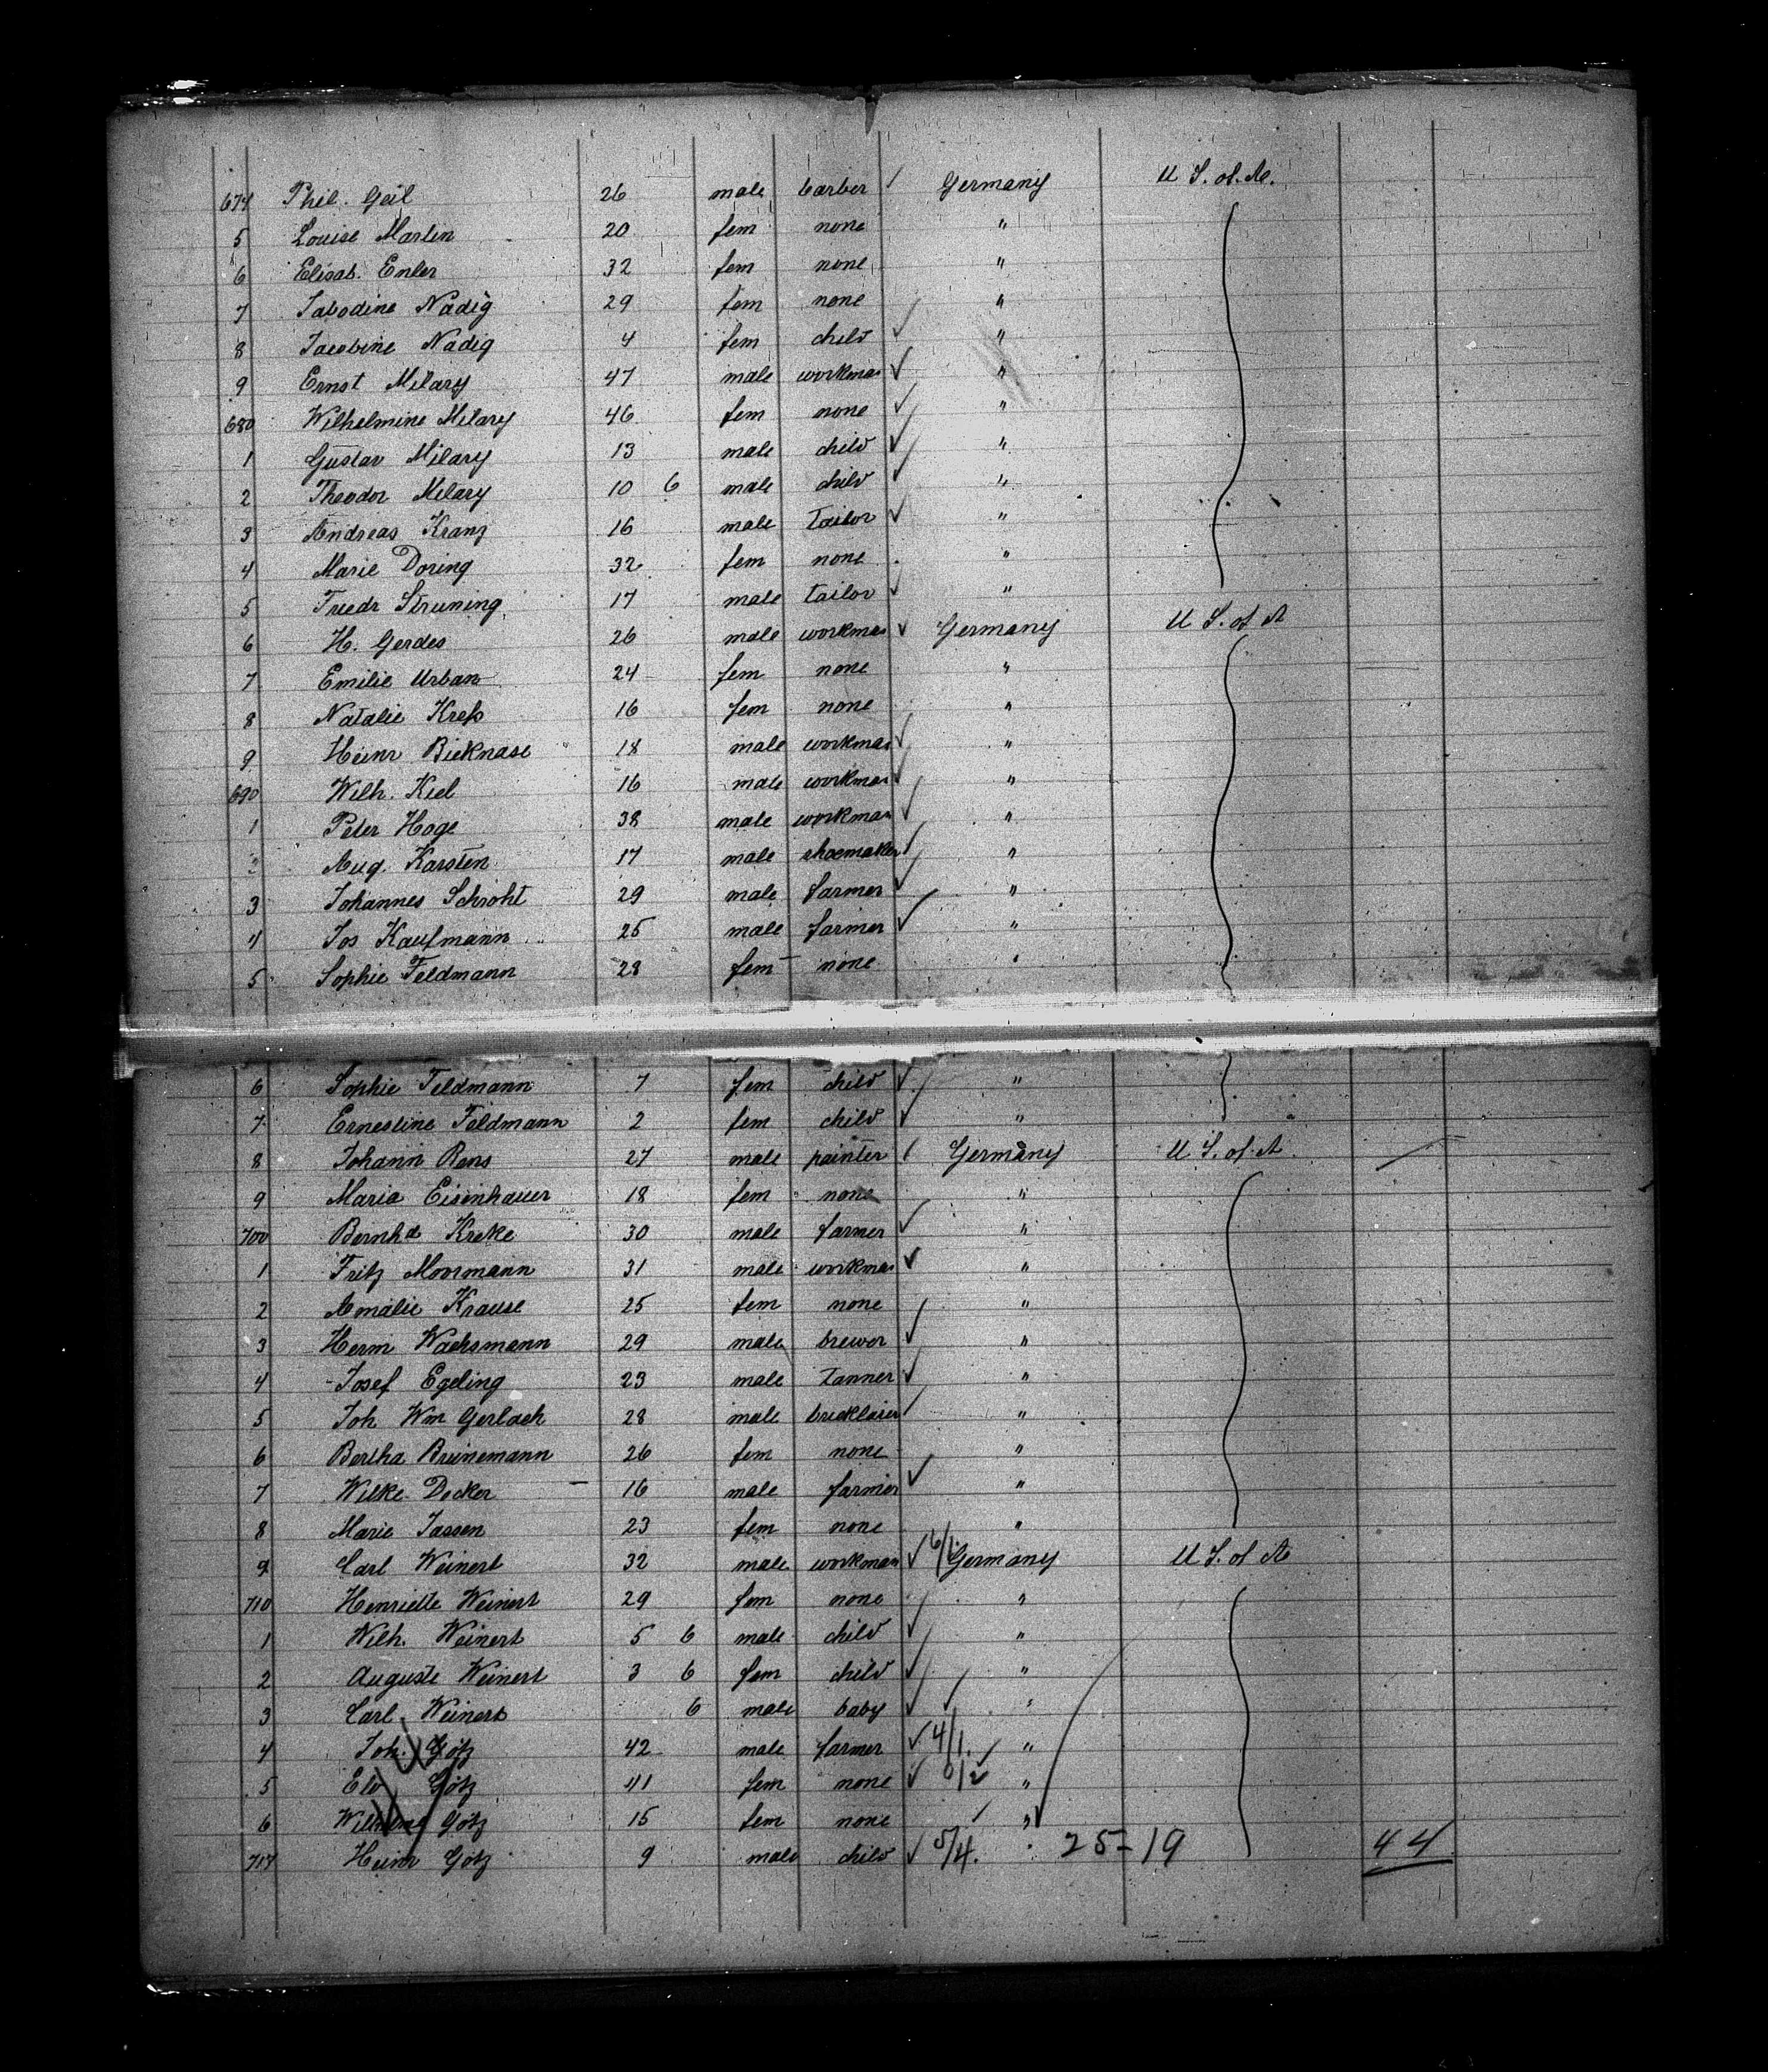 674 Phil. Geil 26 male barber / Germany U S. of. A.
5 Louise Martin 20 fem none "
6 Elisab. Enler 32 fem none "
7 Nädig 29 fem none "
8 Jacobine Nädig 4 fem child ✓ "
9 Ernst Milary 47 male workman ✓ "
680 Wilhelmine Milary 46 fem none ✓ "
1 Gustav Milary 13 male child ✓ "
2 Theodor Milary 10 6 male child ✓ "
3 Andreas Kranz 16 male Tailor ✓ "
4 Marie Doring 32 fem none "
5 Friedr Struning 17 male tailor ✓ "
6 H. Gerdes 26 male workman ✓ Germany U S. of A
7 Emilie Urban 24 fem none "
8 Natalie Kreß 16 fem none "
9 Heinr Bieknase 18 male workman ✓ "
690 Wilh. Kiel 16 male workman ✓ "
1 Peter Hage 38 male workman ✓ "
2 Aug. Karsten 17 male shoemaker / "
3 Johannes Schroht 29 male farmer ✓ "
4 Jos Kaufmann 25 male farmer ✓ "
5 Sophie Feldmann 28 fem none "
6 Sophie Feldmann 7 fem child ✓ "
7 Ernestine Feldmann 2 fem child ✓ "
8 Johann Rens 27 male painter / Germany U S. of A
9 Maria Eisenhauer 18 fem none "
700 Bernhd Kreke 30 male farmer ✓ "
1 Fritz Moormann 31 male workman ✓ "
2 Amalie Krause 25 fem none "
3 Herm Wachsmann 29 male brewer ✓ "
4 Josef Egeling 23 male Tanner ✓ "
5 Joh Wm Gerlach 28 male bricklaier / "
6 Bertha Breinemann 26 fem none "
7 Wilke Decker 16 male farmer ✓ "
8 Marie Jassen 23 fem none "
9 Carl Weinert 32 male workman ✓ 6/1. Germany U S. of A
710 Henriette Weinert 29 fem none "
1 Wilh. Weinert 5 6 male child ✓ "
2 Auguste Weinert 3 6 fem child ✓ "
3 Carl Weinert 6 male baby ✓ "
4 Joh. Götz 42 male farmer ✓ 4/1. "
5 Götz 41 fem none ✓ "
6 Götz 15 fem none "
717 Heinr Götz 9 male child ✓ 5/4. 25-19 44